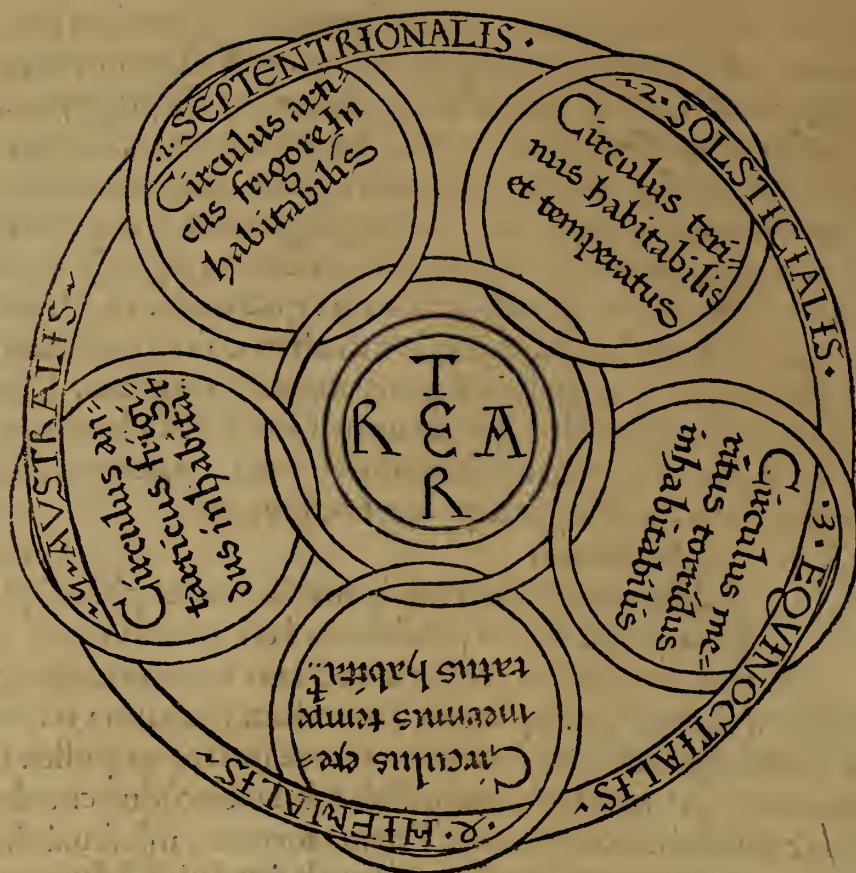 ·1· SEPTENTRIONALIS ·
Circulus arti=
cus frigore In
habitabilis
~2· SOLSTICIALIS ·
Circulus teri=
nus habitabilis
et temperatus
·3· EQVINOCTIALIS ~
Circulus me=
ritus torridus
inhabitabilis
HIEMIALIS ~
Circulus exe=
merinus tempe
ratus habitat..
~4~ AVSTRALIS ~
Circulus an=
tarticus frigi=
dus
T
R E A
R